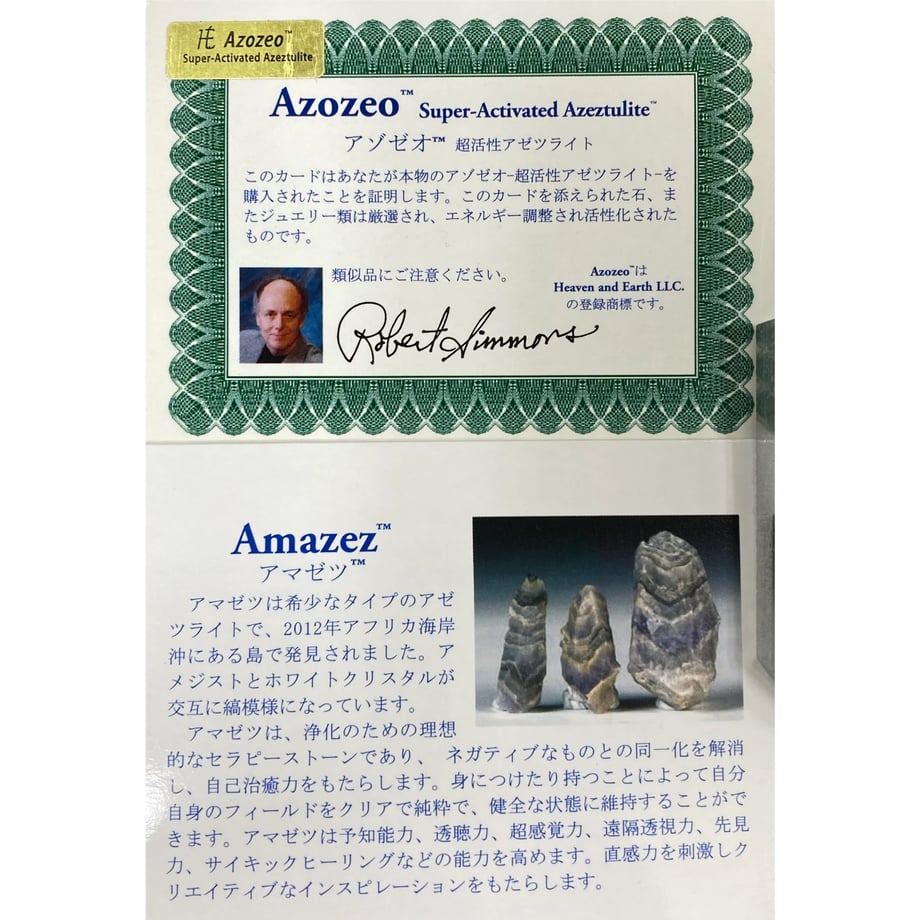 HE Azozeo™
Super-Activated Azeztulite
Azozeo™ Super-Activated Azeztulite™
アゾゼオ™ 超活性アゼツライト
このカードはあなたが本物のアゾゼオ-超活性アゼツライト-を
購入されたことを証明します。このカードを添えられた石、ま
たジュエリー類は厳選され、エネルギー調整され活性化された
ものです。
類似品にご注意ください。
Azozeo™は
Heaven and Earth LLC.
の登録商標です。
Robert Simmons
Amazez™
アマゼツ™
アマゼツは希少なタイプのアゼ
ツライトで、2012年アフリカ海岸
沖にある島で発見されました。ア
メジストとホワイトクリスタルが
交互に縞模様になっています。
アマゼツは、浄化のための理想
的なセラピーストーンであり、 ネガティブなものとの同一化を解消
し、自己治癒力をもたらします。身につけたり持つことによって自分
自身のフィールドをクリアで純粋で、健全な状態に維持することがで
きます。アマゼツは予知能力、透聴力、超感覚力、遠隔透視力、先見
力、サイキックヒーリングなどの能力を高めます。直感力を刺激しク
リエイティブなインスピレーションをもたらします。